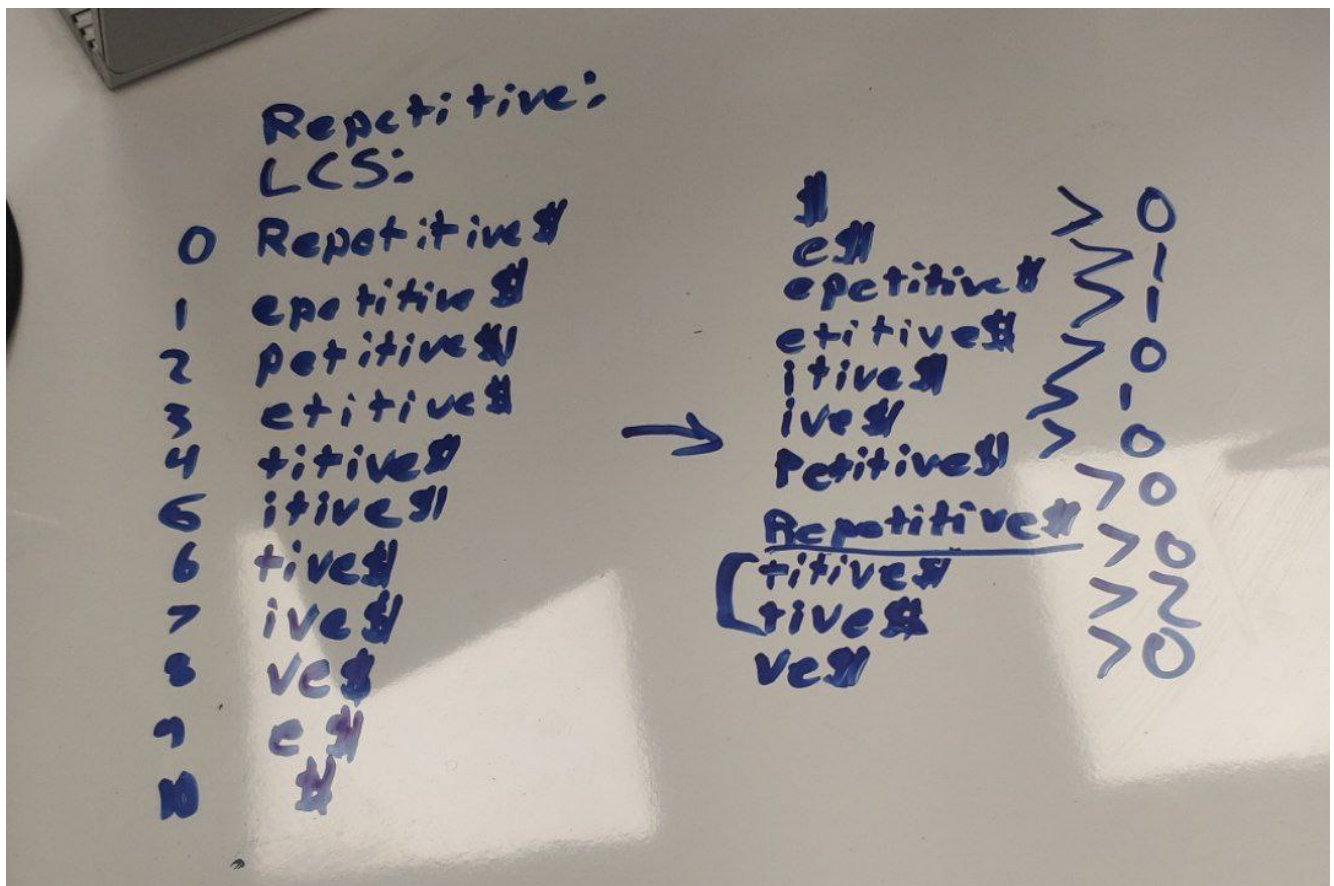 Repetitive:
LCS:
0 Repetitive$
1 epetitive$
2 petitive$
3 etitive$
4 titive$
5 itive$
6 tive$
7 ive$
8 ve$
9 e$
10 $
→
$
e$
epetitive$
etitive$
itive$
ive$
Petitive$
Repetitive$
titive$
tive$
ve$
> 0
> 1
> 1
> 0
> 1
> 0
> 0
> 0
> 2
> 0